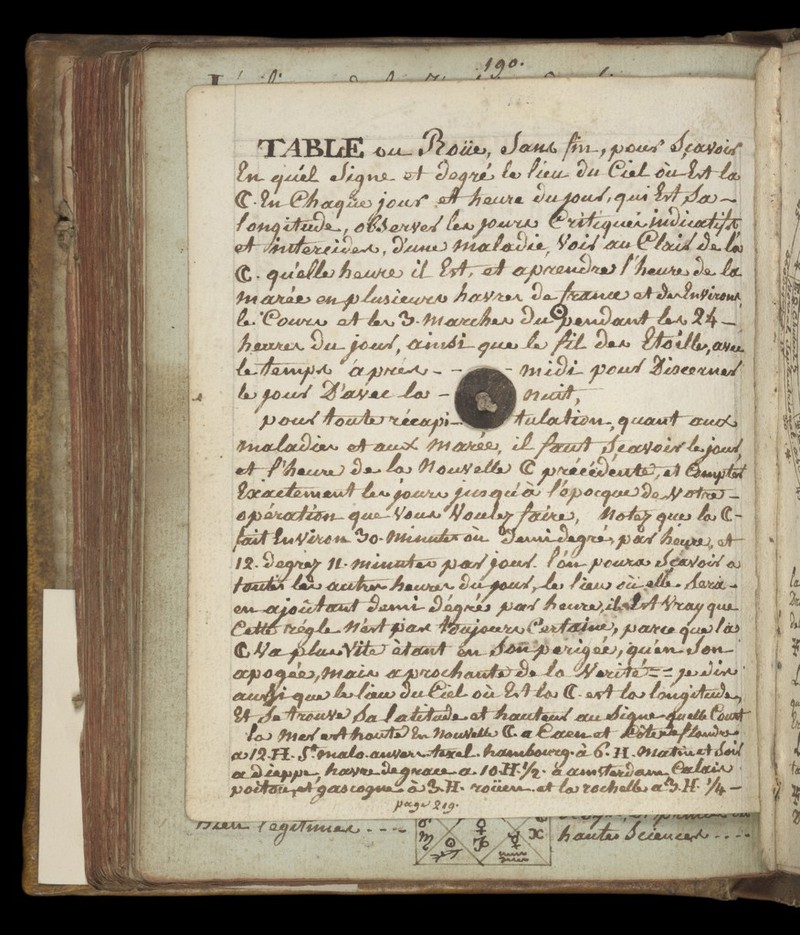 190.
TABLE ou Roüe, Sans fin, pour Sçavoir
En quél Signe et degré le lieu du Ciel où Est la
☾. En Chaque jour et heure du jour, qui Est Sa -
longitude, observer les jours Critiques indicatifs
et intercides, d'une maladie, Voir au Clair de la
☾. qu'elle heure il Est, et aprendre l'heure de la
marée en plusieurs havres de france et des Environs,
le Cours et les 3. marches du pendant les 24 -
heures du jour, ainsi que le fil des Etoilles, avec
le temps áprés - - - midi pour Discerner
le jour D'avec la - nuit,
pour toute récapi- tulation, quant aux
maladies et aux marée, il faut Sçavoir le jour,
et l'heure de la Nouvelle ☾ précédente, et Compter
Exactement les jours jusqu'à l'épocque de Votre -
opération que Vous Voulez faire, Notez que la ☾ -
fait Environ 30. minutes ou Demi degré, par heure, et
12. degrez 11. minutes par jour. l'on poura Sçavoir a
toutes les autres heures du jour, le lieu où elle Sera -
en ajoutant demi dégré par heure, il Est Vray que
Cette régle N'est pas toujours Certaine, parce que la
☾ Va plus Vite ètant en Son perigée, qu'en Son
apogée, mais aprochante de la Verité = = je dis
aussi que le lieu du Ciel où Est la ☾. est la longitude,
Et Se trouve Sa latitude et hauteur au Signe quelle Court
la Mer est haute En Nouvelle ☾ a Caen et Côtes flandre
a 12.H. St. malo. anvers. texel. hambourg. à 6. H. Matin et Soir
a dieppe, havre de grace a 10.H. ½. a amsterdam, Calais
poitou, et gascogne à 3.H. roüen. et la rochelle a 3.H. ¼ -
page 219.
Bien légitimes - - - -
hautes Sciences - - - -
♂ ♀
♏ ☉ ☿ ♓